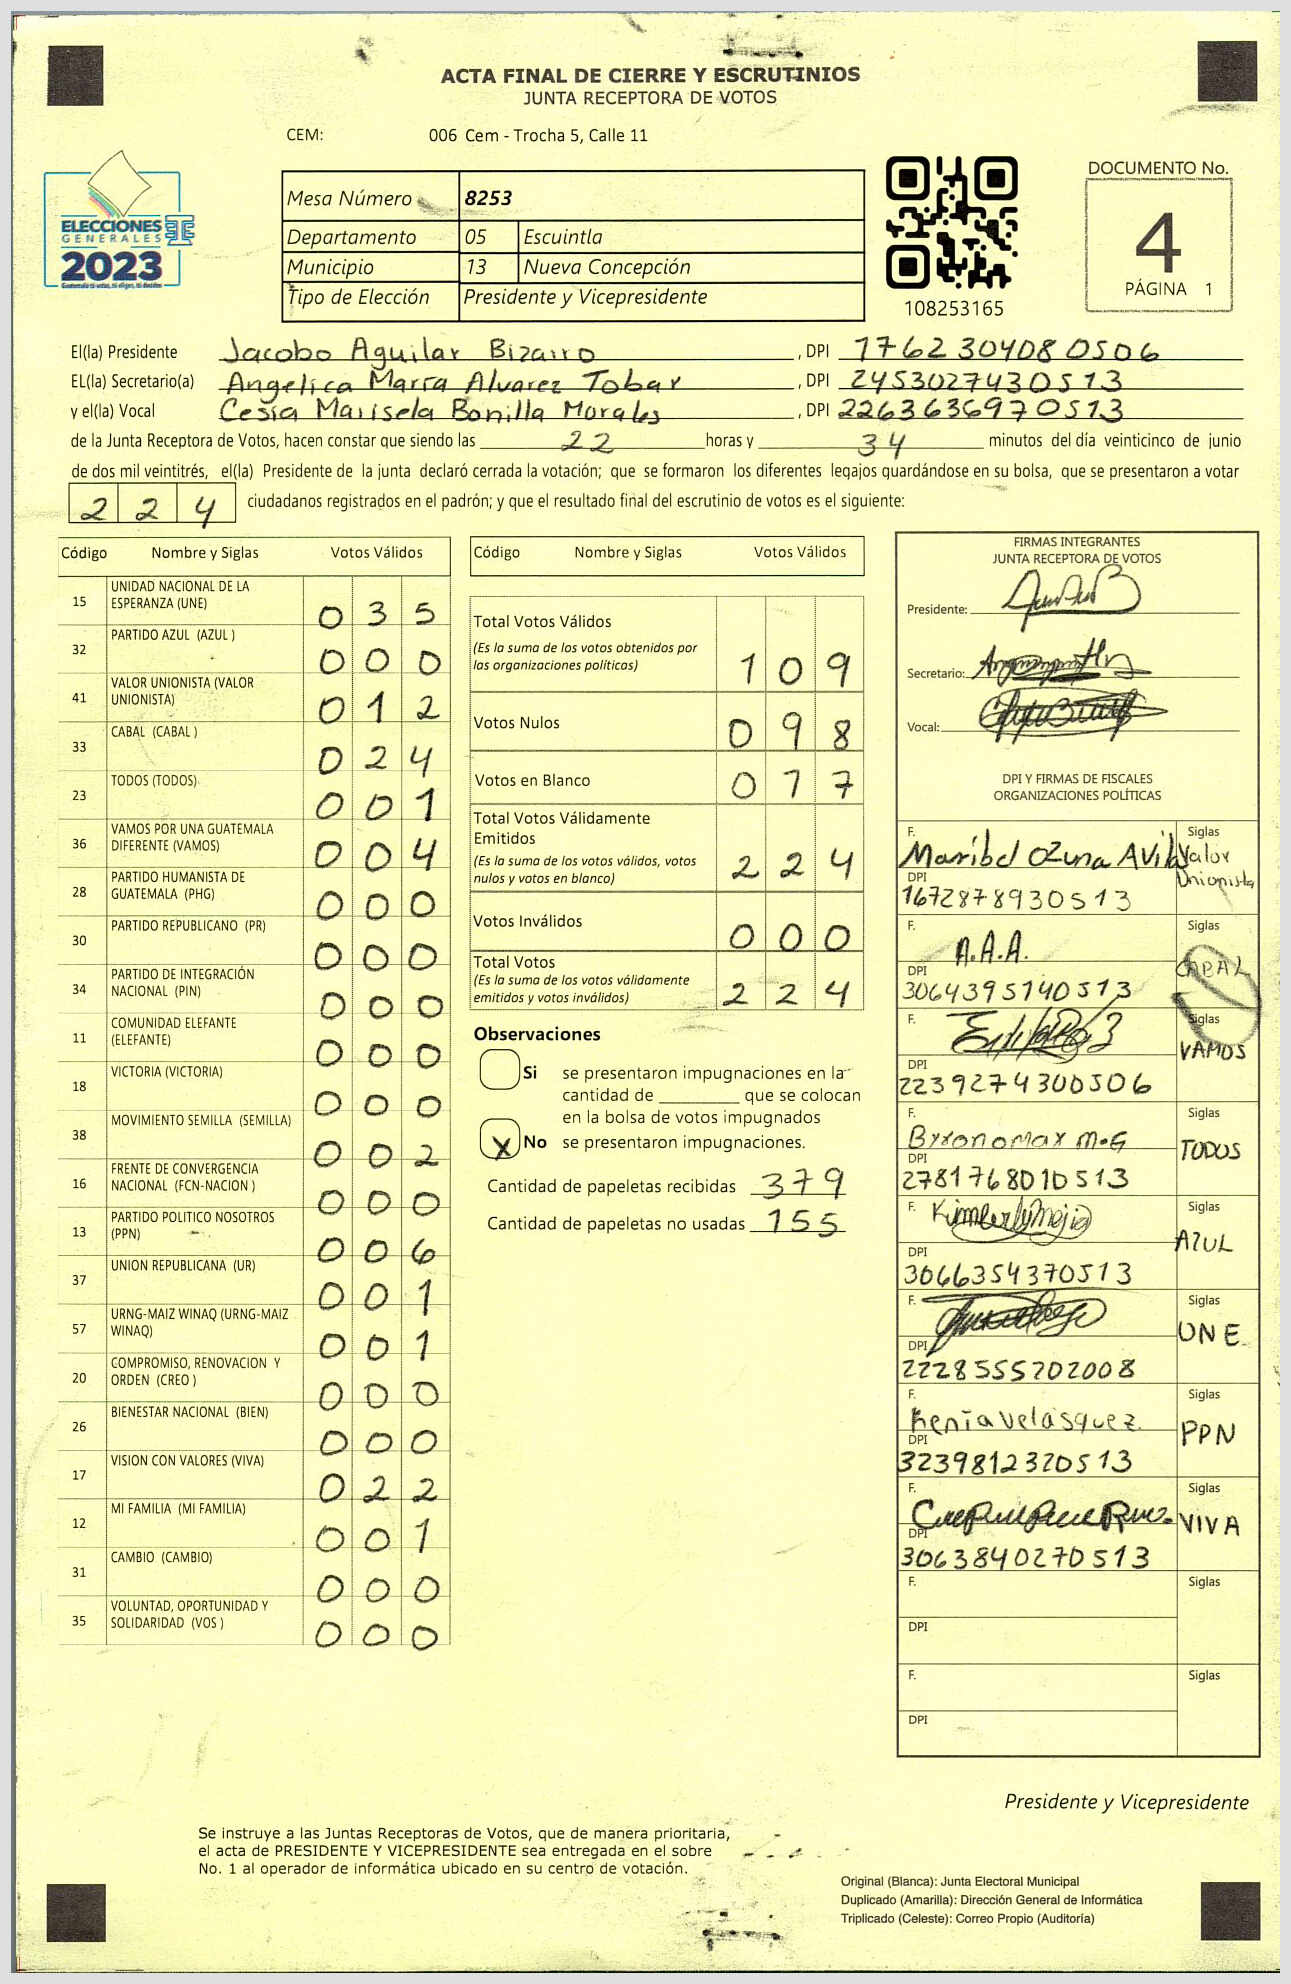 ACTA FINAL DE CIERRE Y ESCRUTINIOS
JUNTA RECEPTORA DE VOTOS
CEM: 006 Cem - Trocha 5, Calle 11
ELECCIONES
GENERALES
2023
Mesa Número 8253
Departamento 05 Escuintla
Municipio 13 Nueva Concepción
Tipo de Elección Presidente y Vicepresidente
108253165
DOCUMENTO No.
4
PÁGINA 1
El(la) Presidente Jacobo Aguilar Bizarro, DPI 1762304080506
EL(la) Secretario(a) Angelica Marra Alvarez Tobar, DPI 2453027430513
y el(la) Vocal Cesia Marisela Bonilla Morales, DPI 2263636970513
de la Junta Receptora de Votos, hacen constar que siendo las 22 horas y 34 minutos del día veinticinco de junio
de dos mil veintitrés, el(la) Presidente de la junta declaró cerrada la votación; que se formaron los diferentes legajos guardándose en su bolsa, que se presentaron a votar
224 ciudadanos registrados en el padrón; y que el resultado final del escrutinio de votos es el siguiente:
Código Nombre y Siglas Votos Válidos
15 UNIDAD NACIONAL DE LA ESPERANZA (UNE) 035
32 PARTIDO AZUL (AZUL ) 000
41 VALOR UNIONISTA (VALOR UNIONISTA) 012
33 CABAL (CABAL ) 024
23 TODOS (TODOS) 001
36 VAMOS POR UNA GUATEMALA DIFERENTE (VAMOS) 004
28 PARTIDO HUMANISTA DE GUATEMALA (PHG) 000
30 PARTIDO REPUBLICANO (PR) 000
34 PARTIDO DE INTEGRACIÓN NACIONAL (PIN) 000
11 COMUNIDAD ELEFANTE (ELEFANTE) 000
18 VICTORIA (VICTORIA) 000
38 MOVIMIENTO SEMILLA (SEMILLA) 002
16 FRENTE DE CONVERGENCIA NACIONAL (FCN-NACION ) 000
13 PARTIDO POLITICO NOSOTROS (PPN) 006
37 UNION REPUBLICANA (UR) 001
57 URNG-MAIZ WINAQ (URNG-MAIZ WINAQ) 001
20 COMPROMISO, RENOVACION Y ORDEN (CREO ) 000
26 BIENESTAR NACIONAL (BIEN) 000
17 VISION CON VALORES (VIVA) 022
12 MI FAMILIA (MI FAMILIA) 001
31 CAMBIO (CAMBIO) 000
35 VOLUNTAD, OPORTUNIDAD Y SOLIDARIDAD (VOS ) 000
Código Nombre y Siglas Votos Válidos
Total Votos Válidos 109
(Es la suma de los votos obtenidos por
las organizaciones políticas)
Votos Nulos 098
Votos en Blanco 017
Total Votos Válidamente Emitidos 224
(Es la suma de los votos válidos, votos
nulos y votos en blanco)
Votos Inválidos 000
Total Votos 224
(Es la suma de los votos válidamente
emitidos y votos inválidos)
Observaciones
Si se presentaron impugnaciones en la
cantidad de ________ que se colocan
en la bolsa de votos impugnados
X No se presentaron impugnaciones.
Cantidad de papeletas recibidas 379
Cantidad de papeletas no usadas 155
FIRMAS INTEGRANTES
JUNTA RECEPTORA DE VOTOS
Presidente:
Secretario:
Vocal:
DPI Y FIRMAS DE FISCALES
ORGANIZACIONES POLÍTICAS
F. Maribel Ozuna Avila Siglas Valor Unionista
DPI 1672878930513
F. A.A.A. Siglas CABAL
DPI 3064395140513
F. Siglas VAMOS
DPI 2239274300506
F. Byronomax M.G Siglas TODOS
DPI 2781768010513
F. Kimberly Mejia Siglas AZUL
DPI 3066354370513
F. Siglas UNE
DPI 2228555202008
F. Kenia Velasquez Siglas PPN
DPI 3239812320513
F. Siglas VIVA
DPI 3063840270513
F. Siglas
DPI
F. Siglas
DPI
Presidente y Vicepresidente
Se instruye a las Juntas Receptoras de Votos, que de manera prioritaria,
el acta de PRESIDENTE Y VICEPRESIDENTE sea entregada en el sobre
No. 1 al operador de informática ubicado en su centro de votación.
Original (Blanca): Junta Electoral Municipal
Duplicado (Amarilla): Dirección General de Informática
Triplicado (Celeste): Correo Propio (Auditoría)